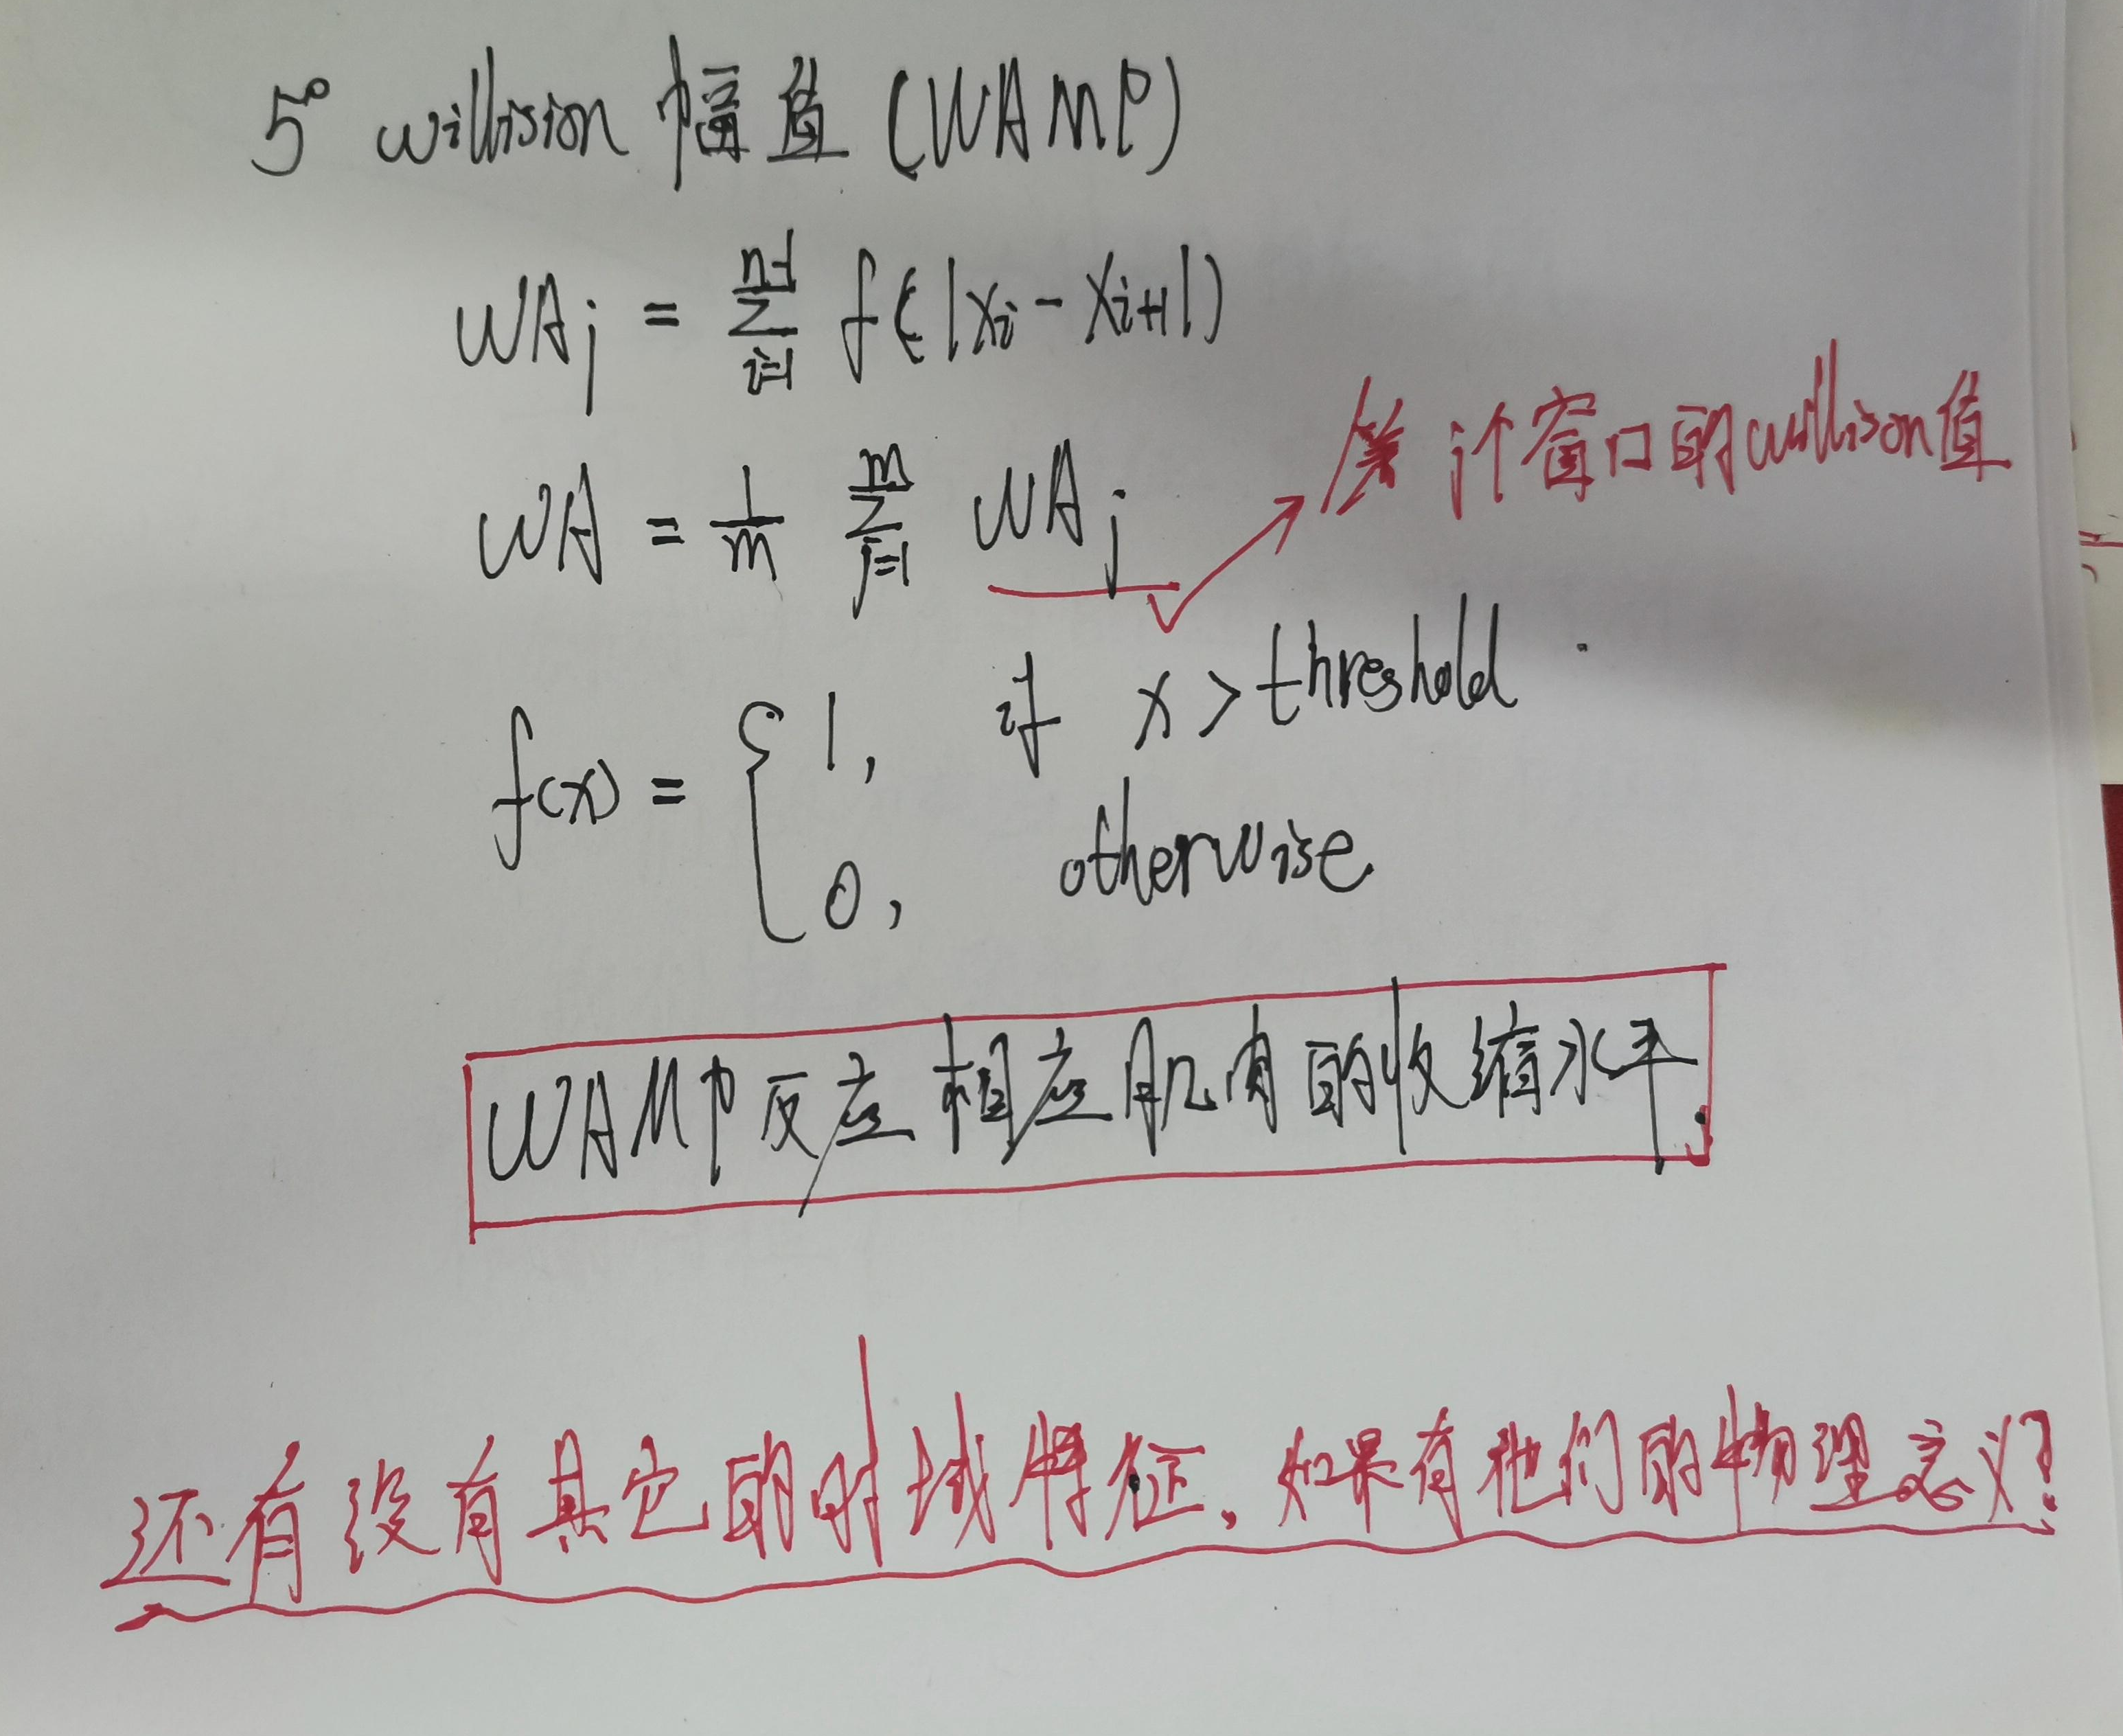 5° willision 幅值 (WAMP)
WAj = ∑_{i=1}^{n-1} f(|xi - xi+1|)
第j个窗口的willison值
WA = 1/m ∑_{j=1}^{m} WAj
f(x) = { 1, if x > threshold
0, otherwise
WAMP反应相应肌肉的收缩水平.
还有没有其它的时域特征,如果有他们的物理意义?